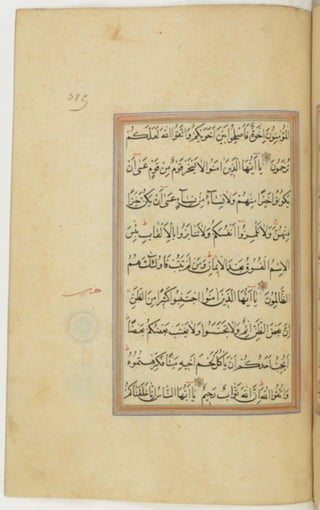 المؤمنون اخوة فاصلحوا بين اخويكم واتقوا الله لعلكم
ترحمون يا ايها الذين امنوا لا يسخر قوم من قوم عسى ان
يكونوا خيرا منهم ولا نساء من نساء عسى ان يكن خيرا
منهن ولا تلمزوا انفسكم ولا تنابزوا بالالقاب بئس
الاسم الفسوق بعد الايمان ومن لم يتب فاولئك هم
الظالمون يا ايها الذين امنوا اجتنبوا كثيرا من الظن
ان بعض الظن اثم ولا تجسسوا ولا يغتب بعضكم بعضا
ايحب احدكم ان ياكل لحم اخيه ميتا فكرهتموه
واتقوا الله ان الله تواب رحيم يا ايها الناس انا خلقناكم